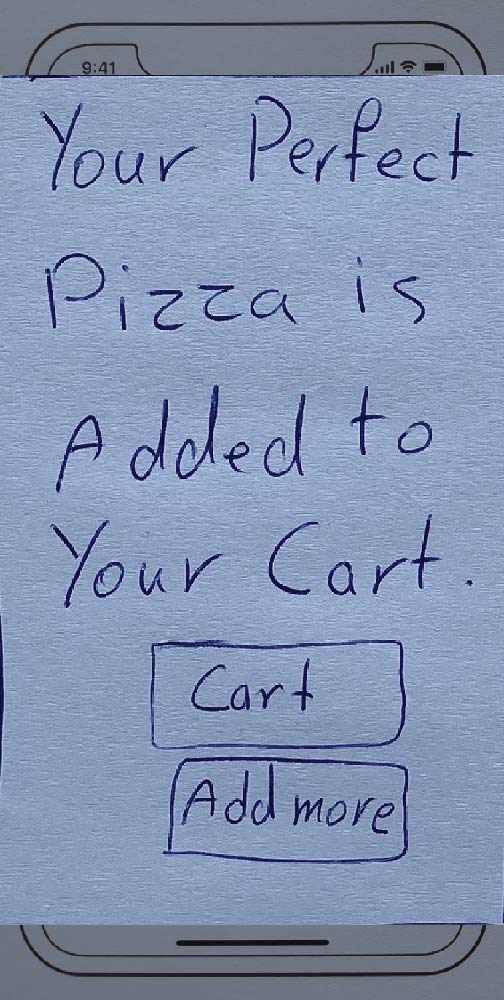 9:41
Your Perfect
Pizza is
Added to
Your Cart.
Cart
Add more